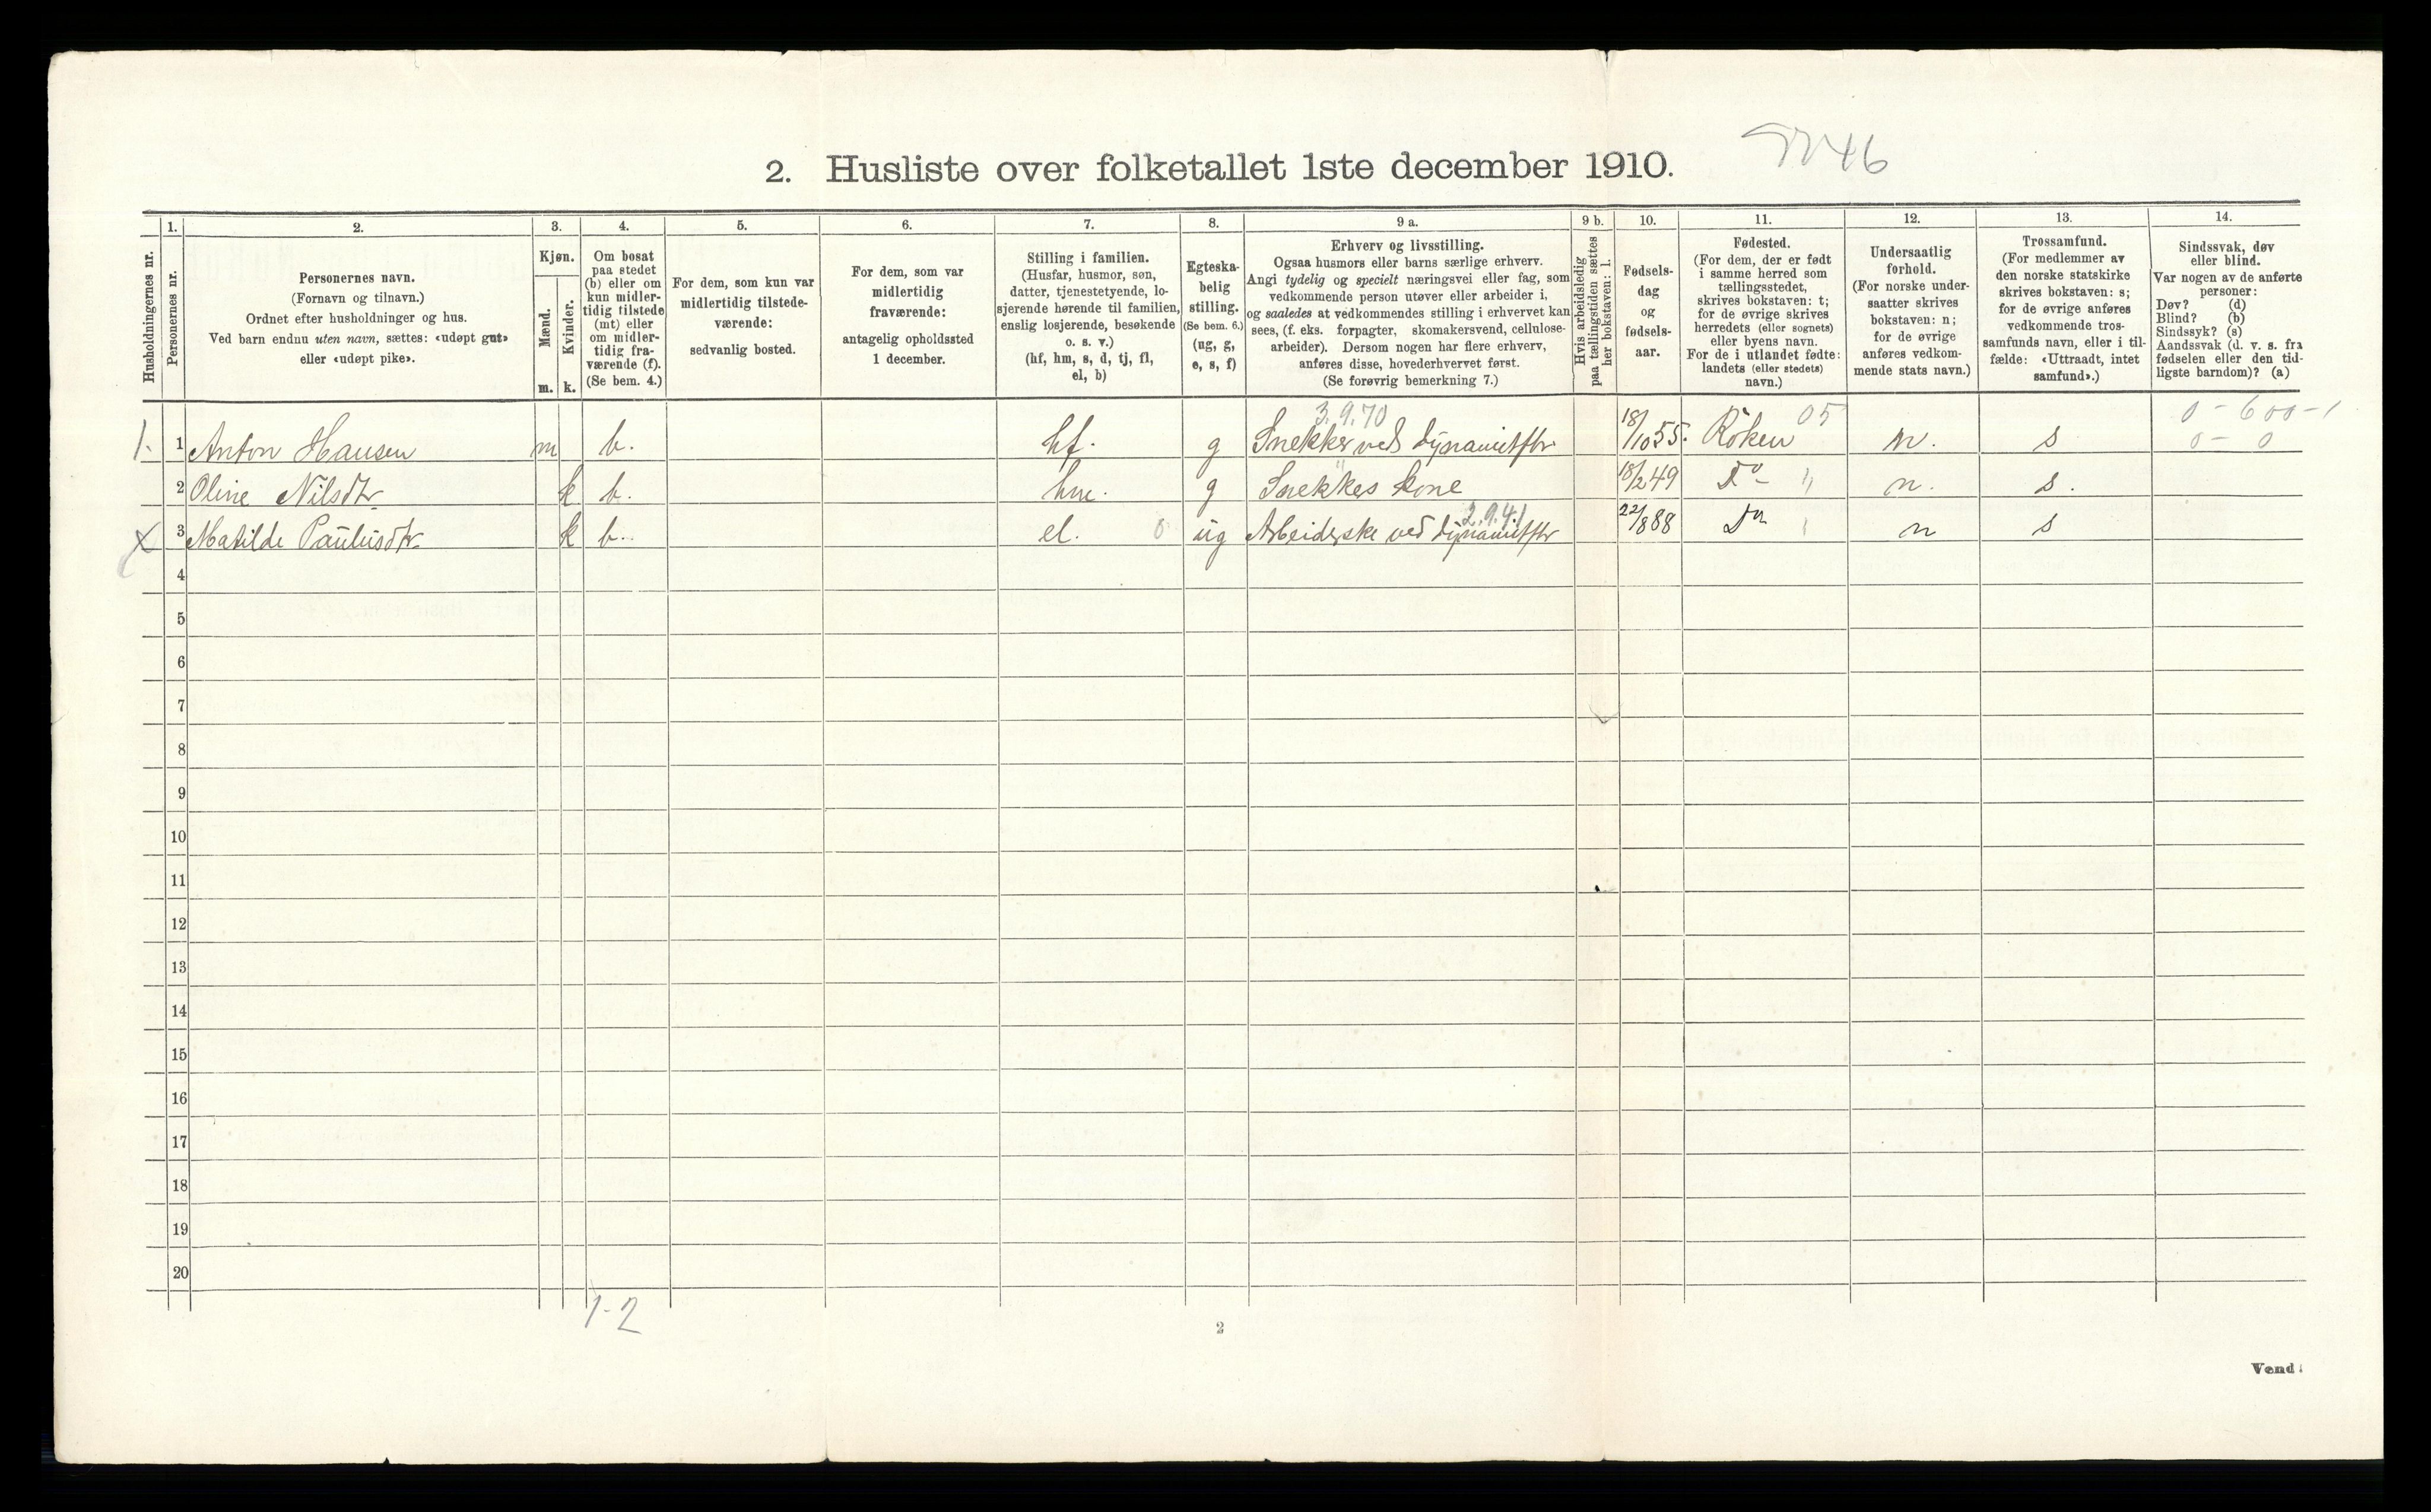 2. Husliste over folketallet 1ste december 1910.
Husholdningernes nr.
1.
Personernes nr.
2.
Personernes navn.
(Fornavn og tilnavn.)
Ordnet efter husholdninger og hus.
Ved barn endnu uten navn, sættes: «udøpt gut»
eller «udøpt pike».
3.
Kjøn.
Mænd.
Kvinder.
m. k.
4.
Om bosat
paa stedet
(b) eller om
kun midler-
tidig tilstede
(mt) eller
om midler-
tidig fra-
værende (f).
(Se bem. 4.)
5.
For dem, som kun var
midlertidig tilstede-
værende:
sedvanlig bosted.
6.
For dem, som var
midlertidig
fraværende:
antagelig opholdssted
1 december.
7.
Stilling i familien.
(Husfar, husmor, søn,
datter, tjenestetyende, lo-
sjerende hørende til familien,
enslig losjerende, besøkende
o. s. v.)
(hf, hm, s, d, tj, fl,
el, b)
8.
Egteska-
belig
stilling.
(Se bem. 6.)
(ug, g,
e, s, f)
9 a.
Erhverv og livsstilling.
Ogsaa husmors eller barns særlige erhverv.
Angi tydelig og specielt næringsvei eller fag, som
vedkommende person utøver eller arbeider i,
og saaledes at vedkommendes stilling i erhvervet kan
sees, (f. eks. forpagter, skomakersvend, cellulose-
arbeider). Dersom nogen har flere erhverv,
anføres disse, hovederhvervet først.
(Se forøvrig bemerkning 7.)
9 b.
Hvis arbeidsledig
paa tællingstiden sættes
her bokstaven: l.
10.
Fødsels-
dag
og
fødsels-
aar.
11.
Fødested.
(For dem, der er født
i samme herred som
tællingsstedet,
skrives bokstaven: t;
for de øvrige skrives
herredets (eller sognets)
eller byens navn.
For de i utlandet fødte:
landets (eller stedets)
navn.)
12.
Undersaatlig
forhold.
(For norske under-
saatter skrives
bokstaven: n;
for de øvrige
anføres vedkom-
mende stats navn.)
13.
Trossamfund.
(For medlemmer av
den norske statskirke
skrives bokstaven: s;
for de øvrige anføres
vedkommende tros-
samfunds navn, eller i til-
fælde: «Uttraadt, intet
samfund».)
14.
Sindssvak, døv
eller blind.
Var nogen av de anførte
personer:
Døv? (d)
Blind? (b)
Sindssyk? (s)
Aandssvak (d. v. s. fra
fødselen eller den tid-
ligste barndom)? (a)
3.9.70 05 0-600-1
1. 1 Anton Hansen m b. hf. g Snekker ved dynamitfbr 18/10 55. Röken n. s 0-0
2 Oline Nilsdtr. k b. hm. g " Snekkes kone 18/2 49 Do " n. s.
2.9.41
x 3 Matilde Paulusdtr. k b. el. 0 ug Arbeiderske ved dynamitfbr 22/8 88 Do n s
4
5
6
7
8
9
10
11
12
13
14
15
16
17
18
19
20
1-2
2
Vend!